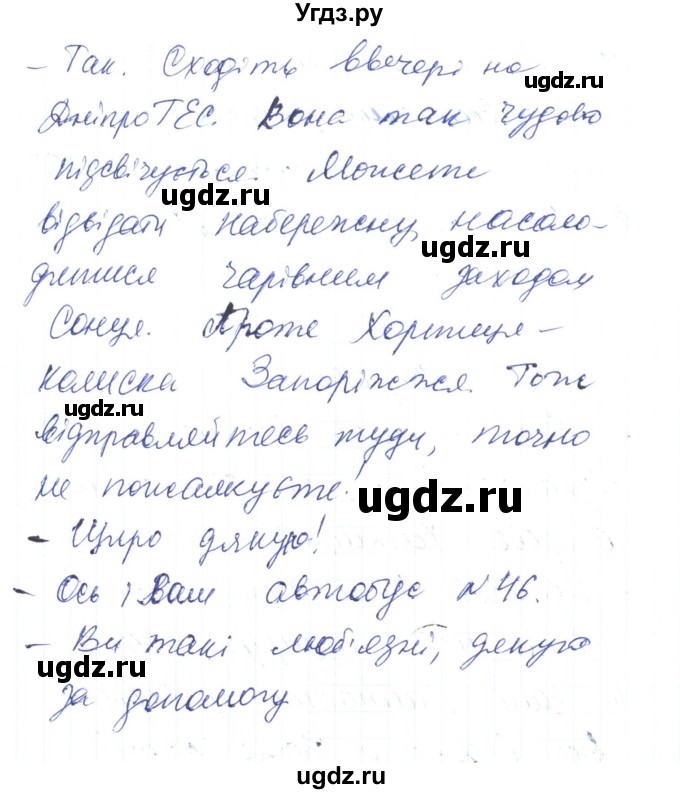 Угдз.ру
- Так. Сходіть ввечері на
ugdz.ru
ДніпроГЕС. Вона так чудово
підсвічується. Можете
ugdz.ru
відвідати набережну, насоло-
ugdz.ru
дитися чарівним заходом
Сонця. Проте Хортиця -
колиска Запоріжжя. Тож
ugdz.ru
відправляйтесь туди, точно
не пожалкуєте!
ugdz.ru
- Щиро дякую!
- Ось і Ваш автобус №46.
- Ви такі люб'язні, дякую
ugdz.ru
за допомогу
ugdz.ru
ugdz.ru